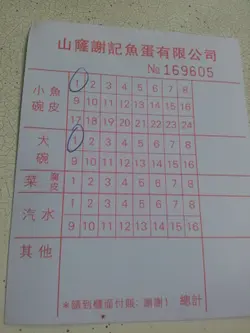 山窿謝記魚蛋有限公司
№ 169605
小魚 1 2 3 4 5 6 7 8
碗皮 9 10 11 12 13 14 15 16
17 18 19 20 21 22 23 24
大 1 2 3 4 5 6 7 8
碗 9 10 11 12 13 14 15 16
菜 魚皮 1 2 3 4 5 6 7 8
汽水 1 2 3 4 5 6 7 8
9 10 11 12 13 14 15 16
其他
*請到櫃面付賬,謝謝! 總計